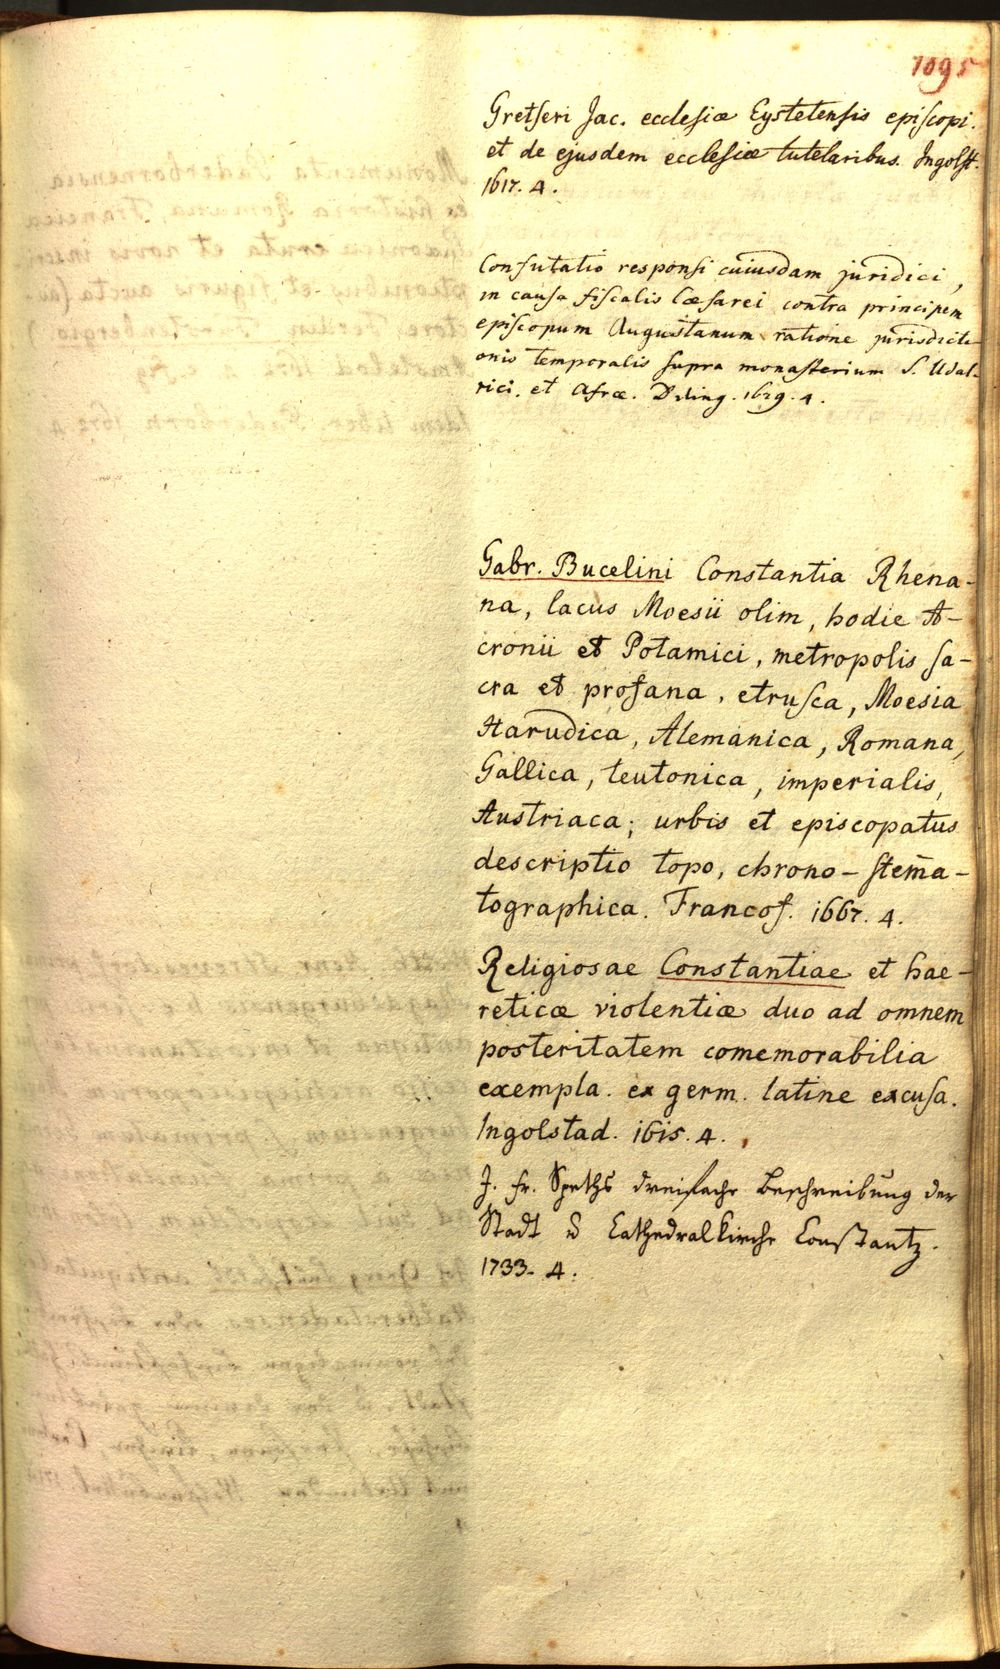 1095
Gretseri Jac. ecclesiæ Eystetensis episcopi.
et de ejusdem ecclesiæ tutelaribus. Ingolst.
1617. 4.
Confutatio responsi cuiusdam juridici,
in causa fiscalis Cæsarei contra principem
episcopum Augustanum ratione jurisdicti-
onis temporalis supra monasterium S. Udal-
rici. et Afræ. Diling. 1629. 4.
Gabr. Bucelini Constantia Rhena-
na, lacus Moesii olim, hodie A-
cronii et Potamici, metropolis sa-
cra et profana, etrusca, Moesia
Harudica, Alemanica, Romana,
Gallica, teutonica, imperialis,
Austriaca; urbis et episcopatus
descriptio topo, chrono-stem̄a-
tographica. Francof. 1667. 4.
Religiosae Constantiae et hae-
reticæ violentiæ duo ad omnem
posteritatem comemorabilia
exempla. ex germ. latine excusa.
Ingolstad. 1615. 4.
J. fr. Speths dreifache Beschreibung der
Stadt u Cathedralkirche Constantz.
1733. 4.